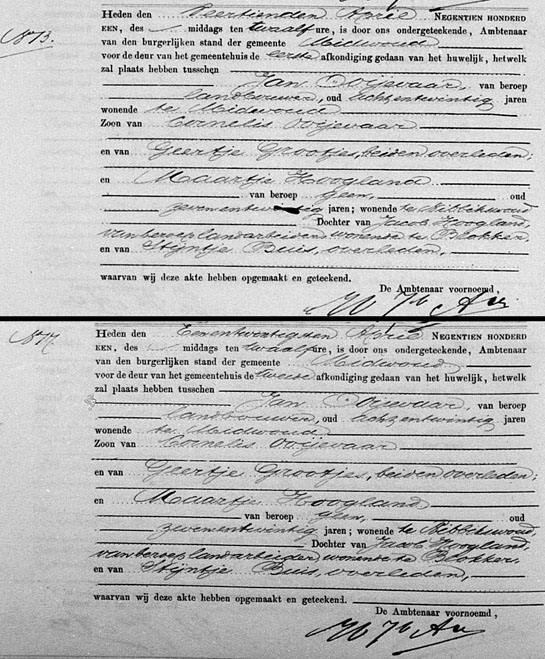 No 13.
Heden den Veertienden April NEGENTIEN HONDERD
EEN, des middags ten twaalf ure, is door ons ondergeteekende, Ambtenaar
van den burgerlijken stand der gemeente Midwoud
voor de deur van het gemeentehuis de eerste afkondiging gedaan van het huwelijk, hetwelk
zal plaats hebben tusschen
Jan Ooijevaar, van beroep
landbouwer, oud achtentwintig jaren
wonende te Midwoud
Zoon van Cornelis Ooijevaar
en van Geertje Grootjes, beiden overleden;
en Maartje Hoogland
van beroep geen, oud
zevenentwintig jaren; wonende te Nibbixwoud,
Dochter van Jacob Hoogland,
van beroep landarbeider, wonende te Blokker,
en van Stijntje Buis, overleden,
waarvan wij deze akte hebben opgemaakt en geteekend.
De Ambtenaar voornoemd,
Heden den Eenentwintigsten April NEGENTIEN HONDERD
EEN, des middags ten twaalf ure, is door ons ondergeteekende, Ambtenaar
van den burgerlijken stand der gemeente Midwoud
voor de deur van het gemeentehuis de tweede afkondiging gedaan van het huwelijk, hetwelk
zal plaats hebben tusschen
Jan Ooijevaar, van beroep
landbouwer, oud achtentwintig jaren
wonende te Midwoud
Zoon van Cornelis Ooijevaar
en van Geertje Grootjes, beiden overleden;
en Maartje Hoogland
van beroep geen, oud
zevenentwintig jaren; wonende te Nibbixwoud,
Dochter van Jacob Hoogland,
van beroep landarbeider, wonende te Blokker,
en van Stijntje Buis, overleden,
waarvan wij deze akte hebben opgemaakt en geteekend.
De Ambtenaar voornoemd,